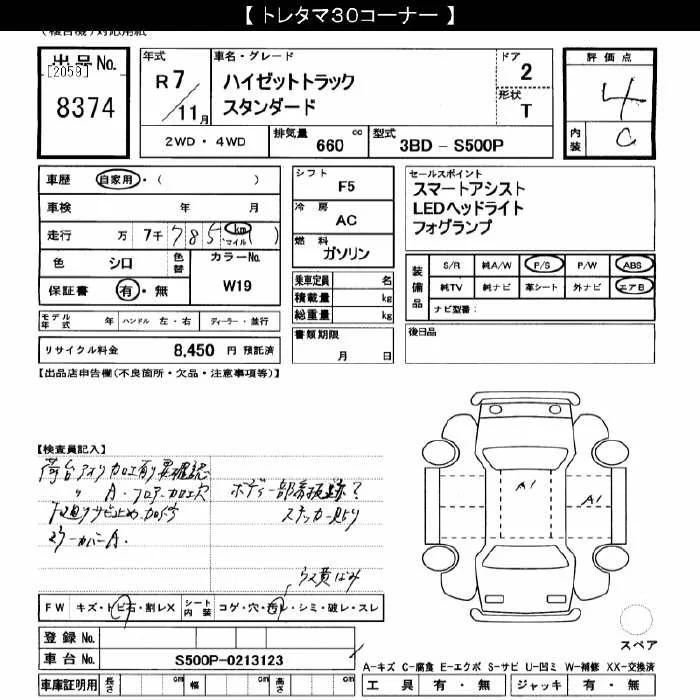 【 トレタマ30コーナー 】
出品No.
[2059]
8374
年式
R 7/11月
車名・グレード
ハイゼットトラック
スタンダード
ドア
2
形状
T
2WD・4WD
排気量 660 cc
型式 3BD-S500P
評価点
4
内装
C
車歴 自家用・( )
車検 年 月
走行 万 7千785 km マイル ( )
色 シロ 色替
カラーNo.
W19
保証書 有・無
モデル年式 年 ハンドル 左・右 ディーラー・並行
リサイクル料金 8,450 円 預託済
シフト
F5
冷房
AC
燃料
ガソリン
乗車定員 名
積載量 kg
総重量 kg
書類期限
月 日
セールスポイント
スマートアシスト
LEDヘッドライト
フォグランプ
装備品
S/R 純A/W P/S P/W ABS
純TV 純ナビ 革シート 外ナビ エアB
ナビ型番:
後日品
【出品店申告欄(不良箇所・欠品・注意事項等)】
【検査員記入】
荷台アオリ加工有り要確認
〃 A・フロアー加工穴
下廻りサビ止め加工
ミラーカバーA.
ボディ一部看板跡?
ステッカー
黄ばみ
A1
A1
FW キズ・トビ石・割レX
シート内装 コゲ・穴・汚レ・シミ・破レ・スレ
登録No.
車台No. S500P-0213123
車庫証明用 長さ cm 幅 cm 高さ cm
スペア
A-キズ C-腐食 E-エクボ S-サビ U-凹ミ W-補修 XX-交換済
工具 有・無 ジャッキ 有・無